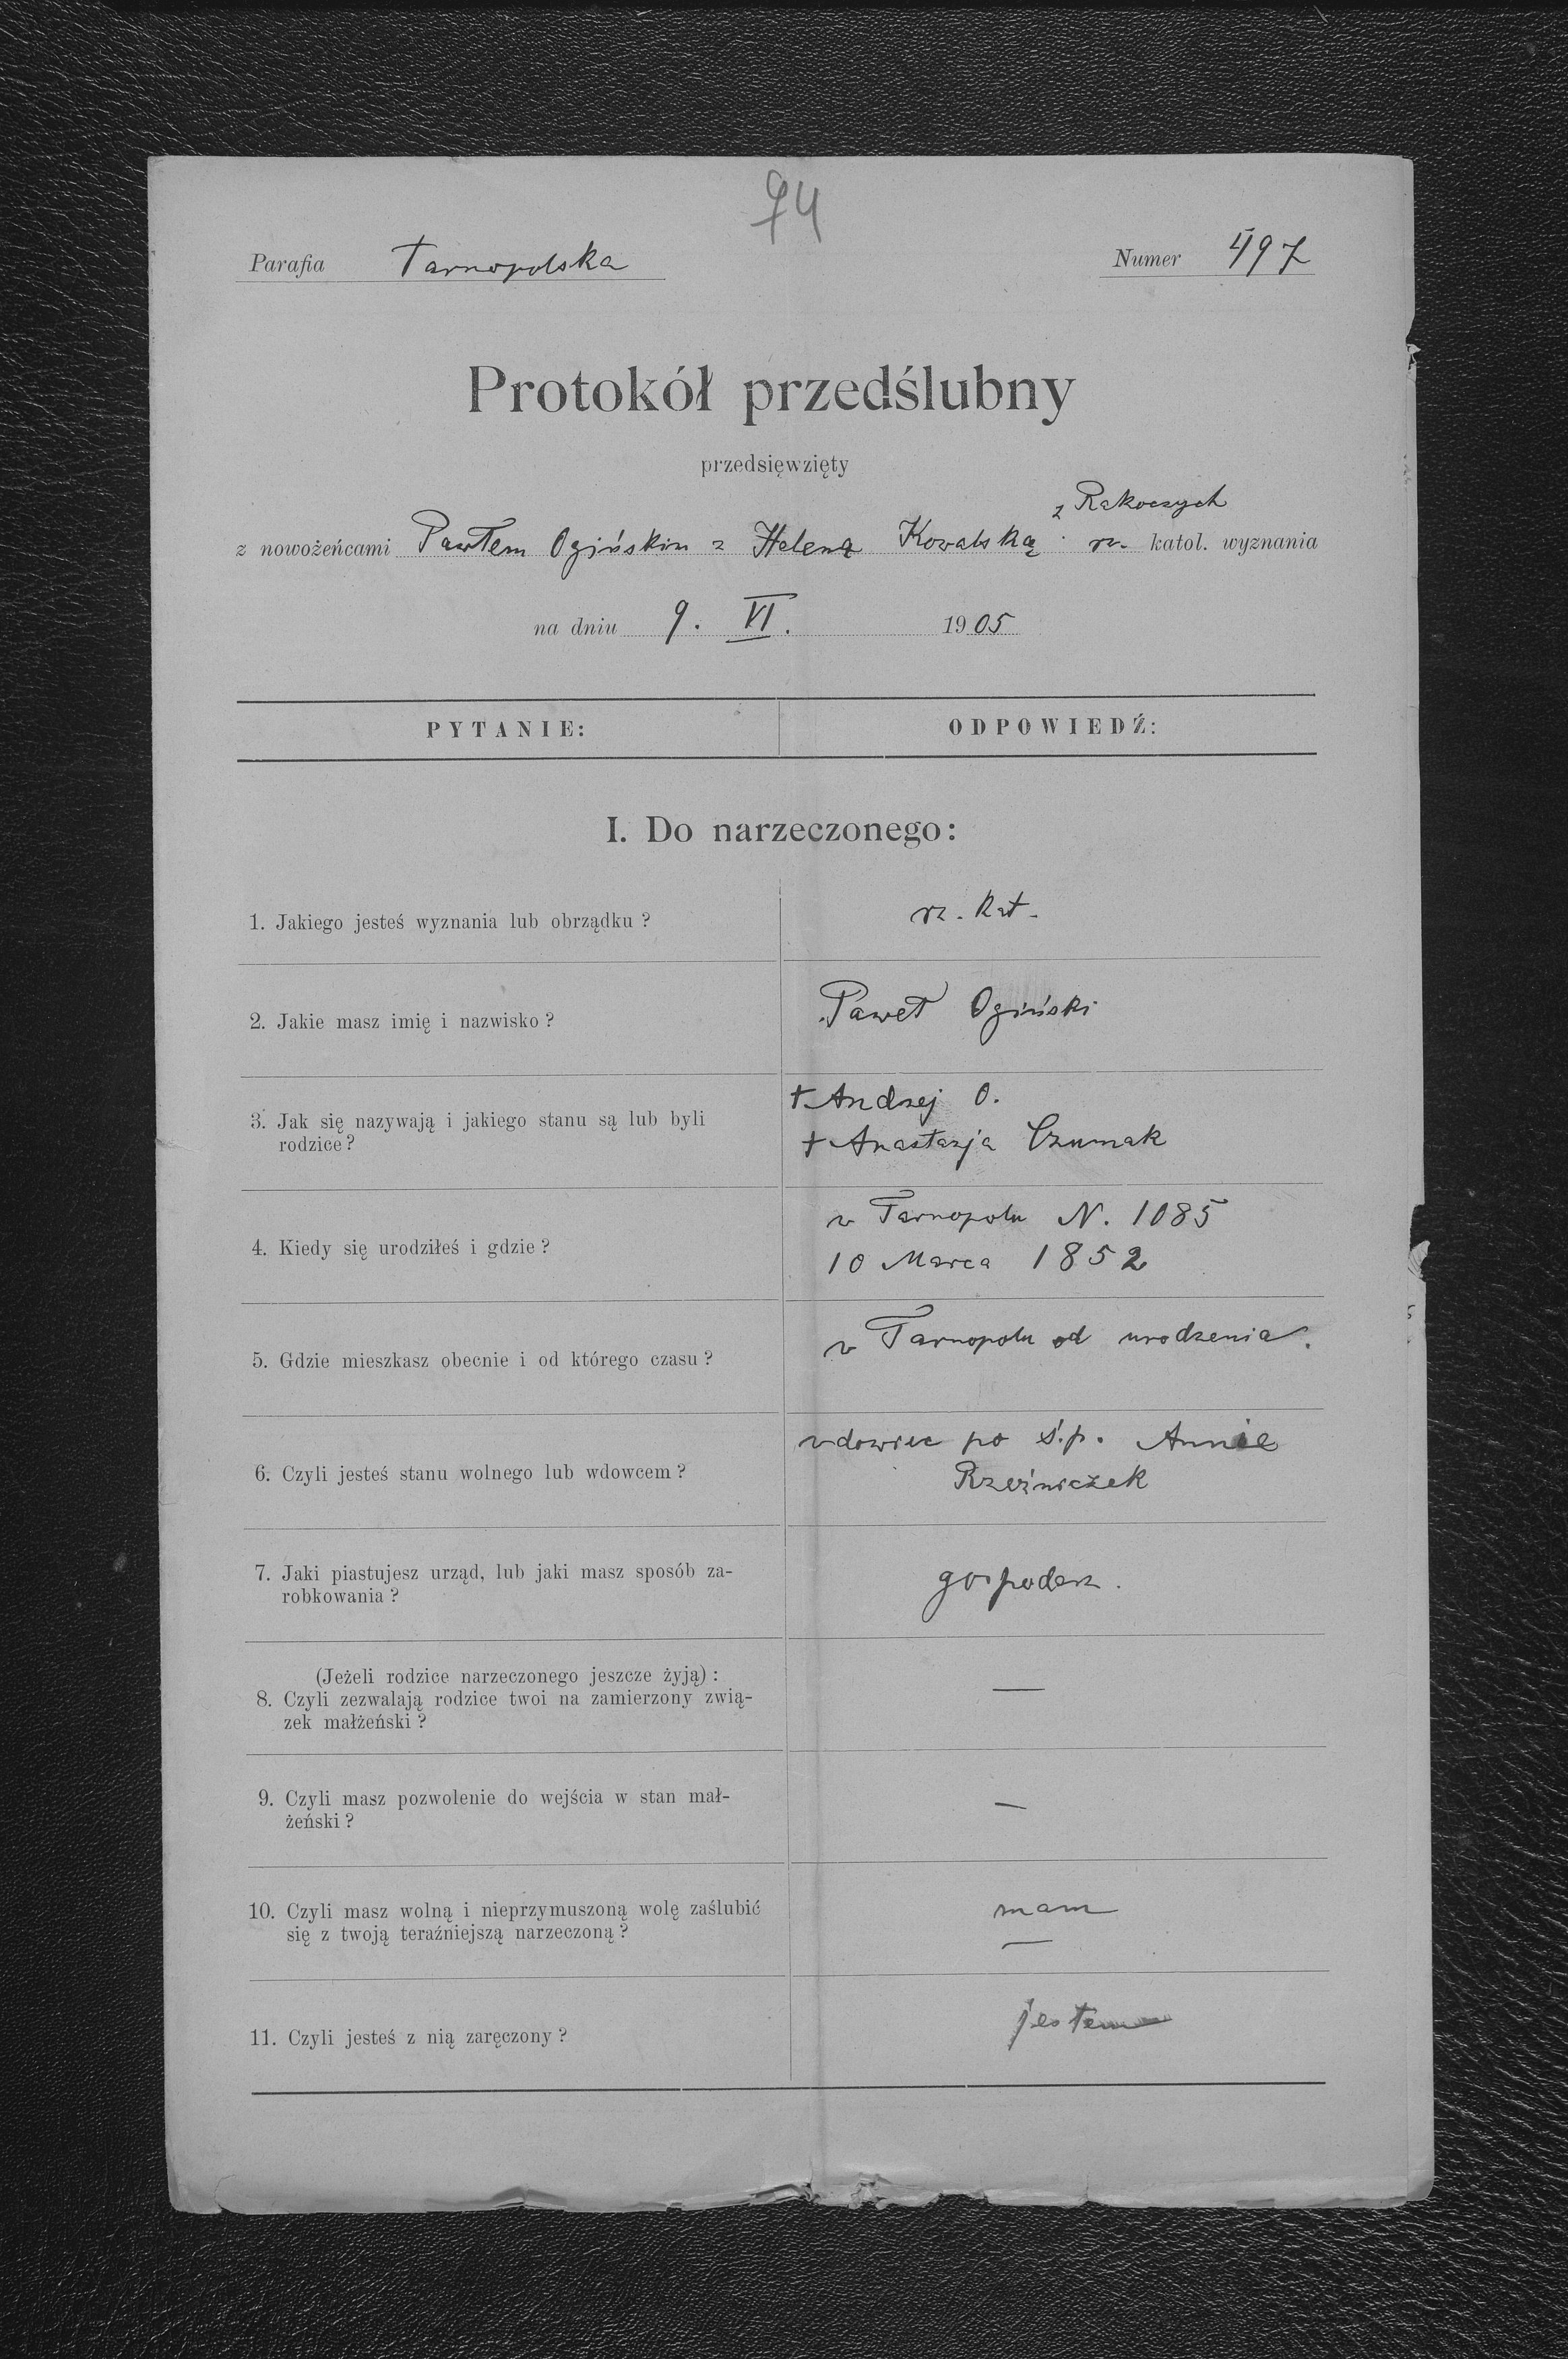 94
Parafia Tarnopolska Numer 497
Protokół przedślubny
przedsięwzięty
z Rakoczych
z nowożeńcami Pawłem Ogińskim z Heleną Kowalską rz. katol. wyznania
na dniu 9. VI. 1905
PYTANIE: ODPOWIEDŹ:
I. Do narzeczonego:
1. Jakiego jesteś wyznania lub obrządku ? rz. kat.
2. Jakie masz imię i nazwisko ? Paweł Ogiński
† Andrzej O.
3. Jak się nazywają i jakiego stanu są lub byli
rodzice ? † Anastazja Czumak
w Tarnopolu N. 1085
4. Kiedy się urodziłeś i gdzie ?
10 Marca 1852
5. Gdzie mieszkasz obecnie i od którego czasu ? w Tarnopolu od urodzenia.
wdowiec po ś.p. Annie
6. Czyli jesteś stanu wolnego lub wdowcem ? Rzeźniczek
7. Jaki piastujesz urząd, lub jaki masz sposób za-
robkowania ? gospodarz.
(Jeżeli rodzice narzeczonego jeszcze żyją) :
8. Czyli zezwalają rodzice twoi na zamierzony zwią- —
zek małżeński ?
9. Czyli masz pozwolenie do wejścia w stan mał- —
żeński ?
10. Czyli masz wolną i nieprzymuszoną wolę zaślubić mam
się z twoją teraźniejszą narzeczoną ? —
11. Czyli jesteś z nią zaręczony ? jestem